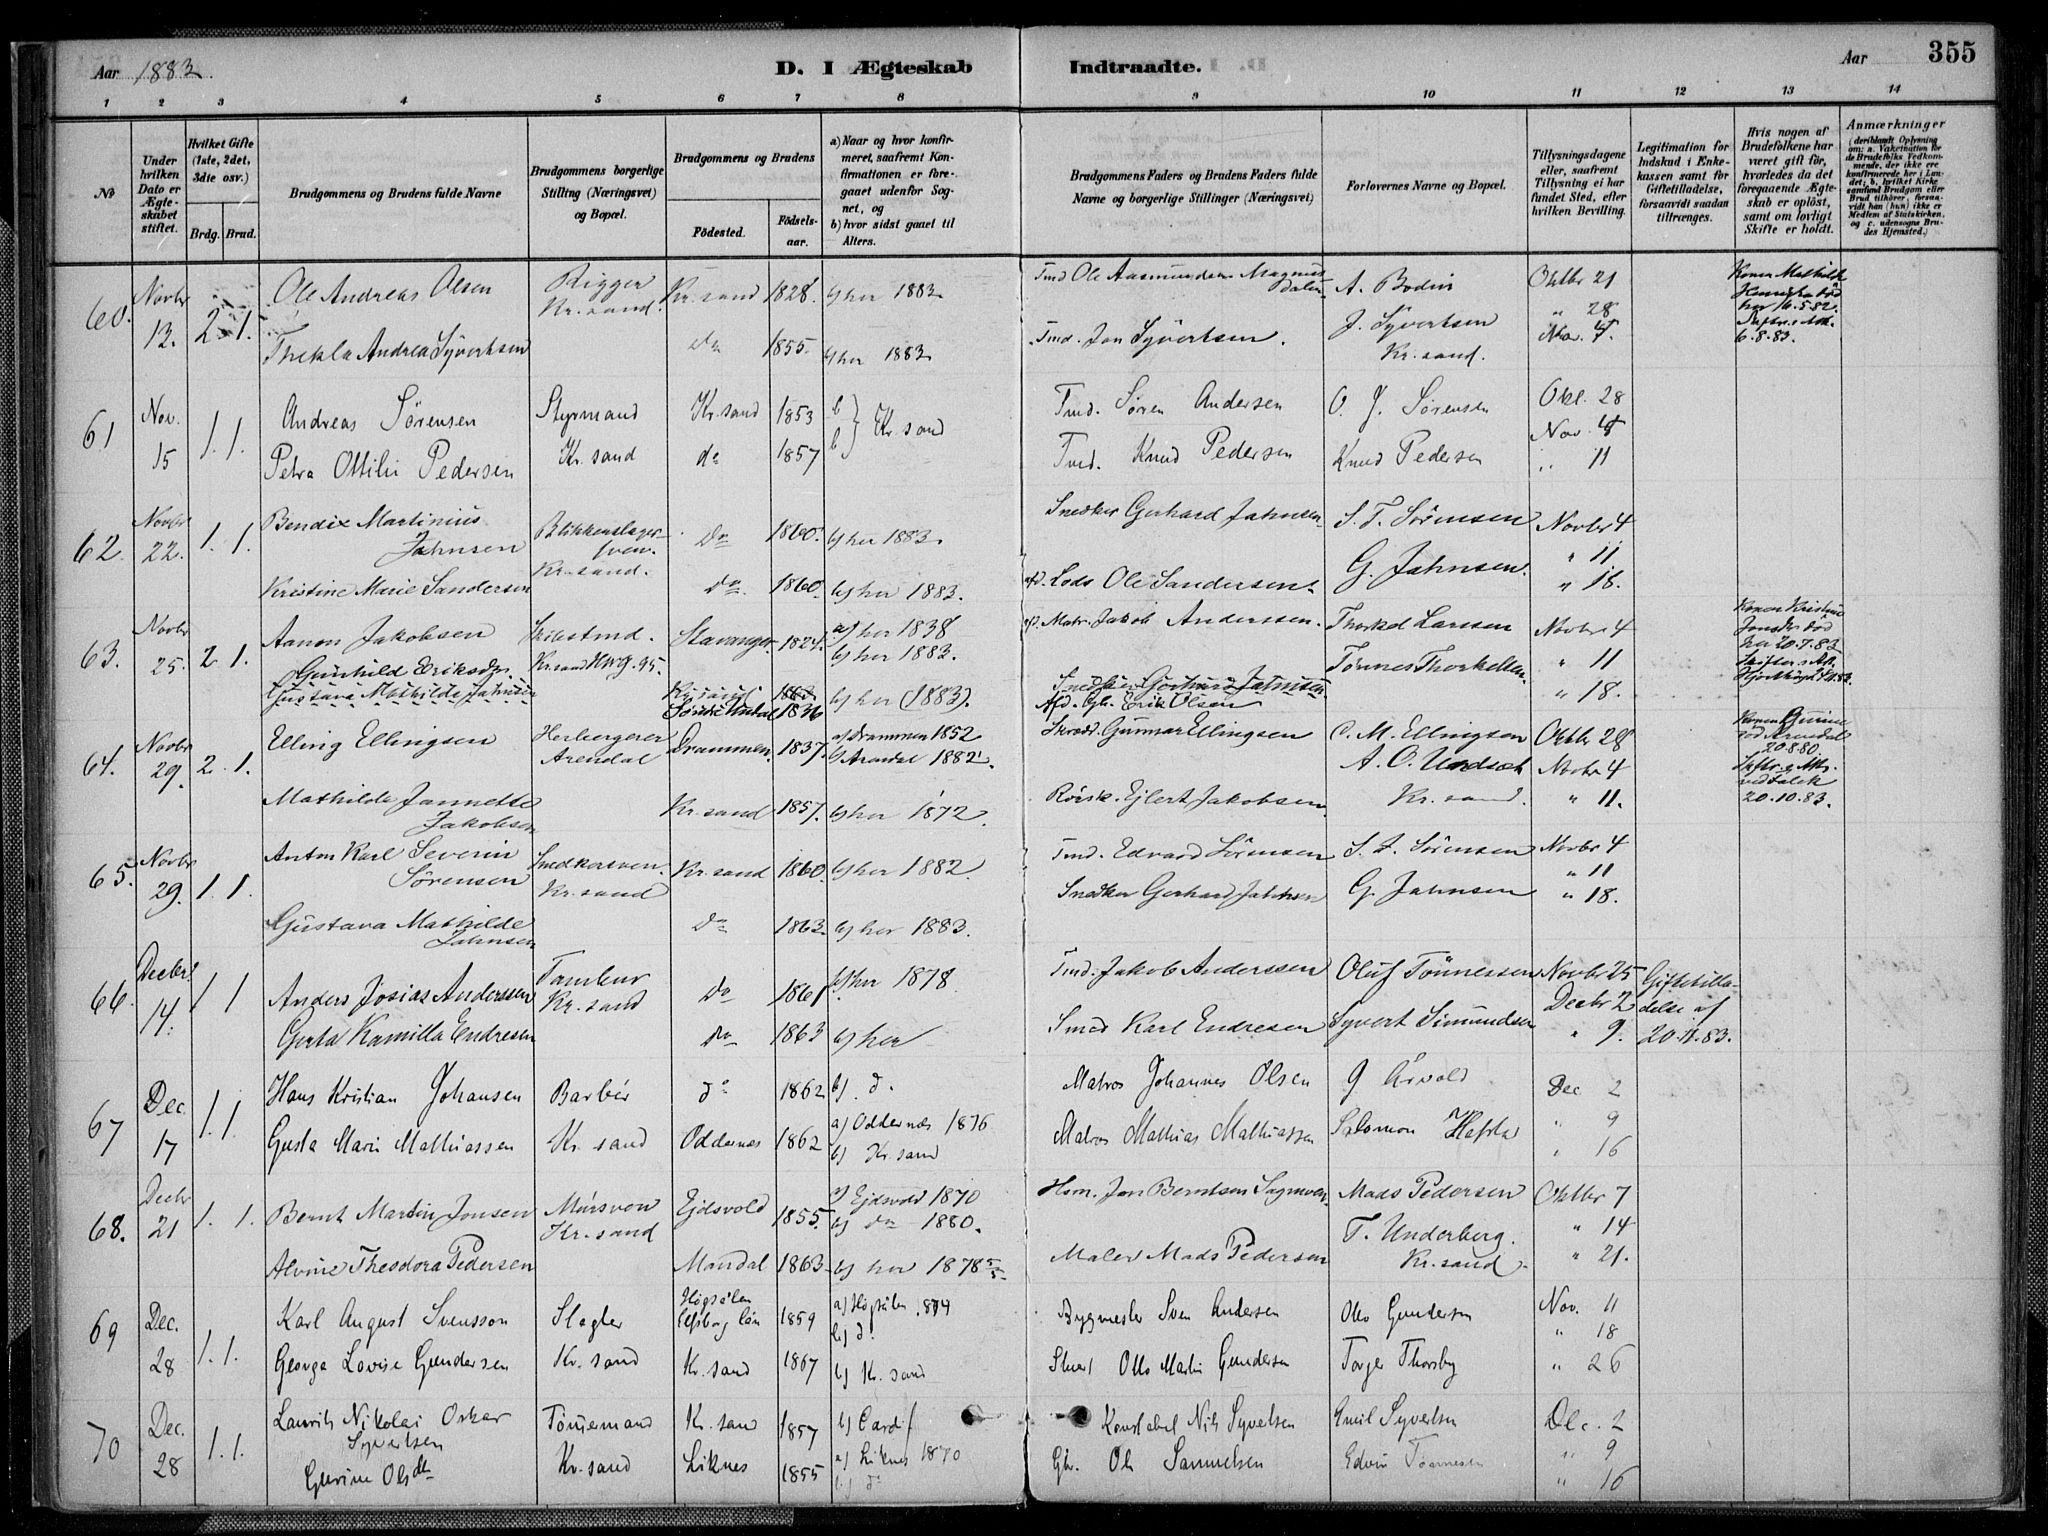 Aar 1883.
D. I Ægteskab Indtraadte.
Aar
355
1 2 3 4 5 6 7 8 9 10 11 12 13 14
No
Under hvilken Dato er Ægteskabet stiftet.
Hvilket Gifte (1ste, 2det, 3die osv.)
Brdg. Brud.
Brudgommens og Brudens fulde Navne
Brudgommens borgerlige Stilling (Næringsvei) og Bopæl.
Brudgommens og Brudens
Födested.
Födselsaar.
a) Naar og hvor konfirmeret, saafremt Konfirmationen er foregaaet udenfor Sognet, og
b) hvor sidst gaaet til Alters.
Brudgommens Faders og Brudens Faders fulde Navne og borgerlige Stillinger (Næringsvei)
Forlovernes Navne og Bopæl.
Tillysningsdagene eller, saafremt Tillysning ei har fundet Sted, efter hvilken Bevilling.
Legitimation for Indskud i Enkekassen samt for Giftetilladelse, forsaavidt saadan tiltrænges.
Hvis nogen af Brudefolkene har været gift för, hvorledes da det foregaaende Ægteskab er oplöst, samt om lovligt Skifte er holdt.
Anmærkninger
(deriblandt Oplysning om: a. Vakcination for de Brudefolks Vedkommende, der ikke ere konfirmerede her i Landet; b. hvilket Kirkesamfund Brudgom eller Brud tilhörer, forsaavidt han (hun) ikke er Medlem af Statskirken, og c. udensogns Brudes Hjemsted.)
60. Novbr 13. 2. 1. Ole Andreas Olsen Rigger Kr.sand. Kr.sand 1828. b) her 1883. Tmd Ole Aasmundsen Magnus Dalen. A. Bodin Oktbr 21
" 28
Thekla Andrea Syvertsen do 1855. b) her 1883. Tmd. Jon Syvertsen. J. Syvertsen Kr.sand. Nov. 4. 6.8.83.
61 Nov. 15 1. 1. Andreas Sörensen Styrmand Kr.sand Kr.sand 1853 b Tmd. Sören Andersen O. J. Sörensen Okt. 28
Nov. 4
Petra Ottilie Pedersen do 1857 b } Kr.sand Tmd. Knud Pedersen Knud Pedersen " 11
62. Novbr 22. 1. 1. Bendix Martinius Jahnsen Blikkenslagersven. Kr.sand. Do 1860. b) her 1883. Snedker Gerhard Jahnsen S. T. Sörensen Novbr 4
" 11
Kristine Marie Sandersen do 1860. b) her 1883. afd. Lods Ole Sandersen. G. Jahnsen. " 18.
63. Novbr 25. 2. 1. Aanon Jakobsen Skibstmd. Kr.sand Stavanger. 1824. a) her 1838 b) her 1883. Matr. Jakob Anderssen. Thorkel Larssen Novbr 4
Gunhild Eriksdtr. Tönnes Thorkelsen. " 11
Gustava Mathilde Jahnsen Kr.sand 1863. b) her (1883). Snedker Gerhard Jahnsen " 18.
Söndre Undal 1836 Afd. Gbr. Erik Olsen
64. Novbr 29. 2. 1. Elling Ellingsen Herbergerer Arendal Drammen. 1837. a) Drammen 1852 b) Arendal 1882. Skræd. Gunnar Ellingsen C. M. Ellingsen Oktbr 28
A. O. Novbr 4
Mathilde Jannette Jakobsen Kr.sand 1857. b) her 1872. Ejlert Jakobsen Kr.sand. " 11. 20.10.83.
65. Novbr 29. 1. 1. Anton Karl Severin Sörensen Snedkersven. Kr.sand Kr.sand 1860. b) her 1882. Tmd. Edvard Sörensen S. T. Sörensen Novbr 4
" 11
Gustava Mathilde Jahnsen do 1863. b) her 1883. Snedker Gerhard Jahnsen G. Jahnsen " 18.
66. Decbr 14. 1 1 Anders Josias Anderssen Tambur Kr.sand Do 1861 b) her 1878. Tmd. Jakob Anderssen Oluf Tönnessen Novbr 25 Giftetilladelse af 20.11.83.
Decbr 2
Gerta Kamilla Endresen Do 1863 b) her Smed Karl Endresen Syvert Simundsen " 9.
67 Dec. 17 1. 1. Hans Kristian Johansen Barbér Kr.sand do 1862 b) do. Matros Johannes Olsen G Arvold Dec 2
" 9
Gusta Marie Mathiassen Oddernes 1862 a) Oddernæs 1876 b) Kr.sand Matros Mathias Mathiassen Salomon " 16
68. Decbr 21 1. 1. Bernt Martin Jonsen Mursven Kr.sand Ejdsvold 1855. a) Ejdsvold 1870 b) do 1880. Hsm. Jon Berntsen Mads Pedersen Oktbr 7
T. Underberg. " 14
Alvine Theodora Pedersen Mandal 1863. b) her 1878 5/5. Maler Mads Pedersen Kr.sand. " 21.
69 Dec. 28 1. 1. Karl August Svensson Slagter Kr.sand Högsäter Elfsborg län 1859 a) Högsäter 1874 b) do Bygmester Sven Andersen Olov Gundersen Nov. 11
" 18
Georga Lovise Gundersen Kr.sand 1867 b) Kr.sand Otto Martin Gundersen Torger Thorsby " 26
70 Dec. 28 1. 1. Laurits Nikolai Oskar Syvertsen Tömmermand Kr.sand Kr.sand 1857 b) Cardif Konstabel Nils Syvertsen Emil Syvertsen Dec. 2
" 9
Gurine Olsdtr Liknes 1855 a) Liknes 1870 b) do Gbr. Ole Samuelsen Edvin Tönnesen " 16